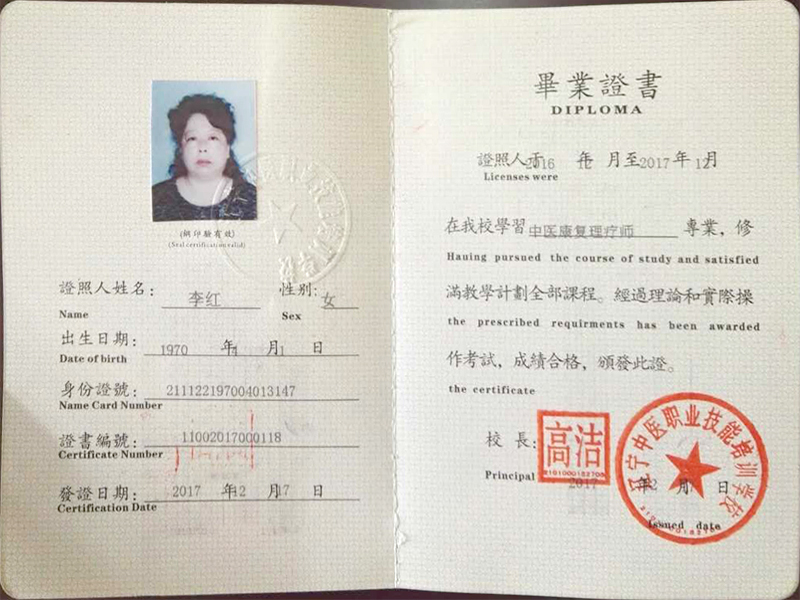 (鋼印驗有效)
(Seal certification valid)
證照人姓名: 李红 性别: 女
Name Sex
出生日期: 1970 年4 月1 日
Date of birth
身份證號: 211122197004013147
Name Card Number
證書編號: 11002017000118
Certificate Number
發證日期: 2017 年12 月17 日
Certification Date
畢業證書
DIPLOMA
證照人于2016 年 月至2017年12月
Licenses were
在我校學習 中医康复理疗师 專業,修
Hauing pursued the course of study and satisfied
滿教學計劃全部課程。經過理論和實際操
the prescribed requirments has been awarded
作考試,成績合格,頒發此證。
the certificate
校長: 高洁
Principal
辽宁中医职业技能培训学校
2017 年12 月 日
Issued date